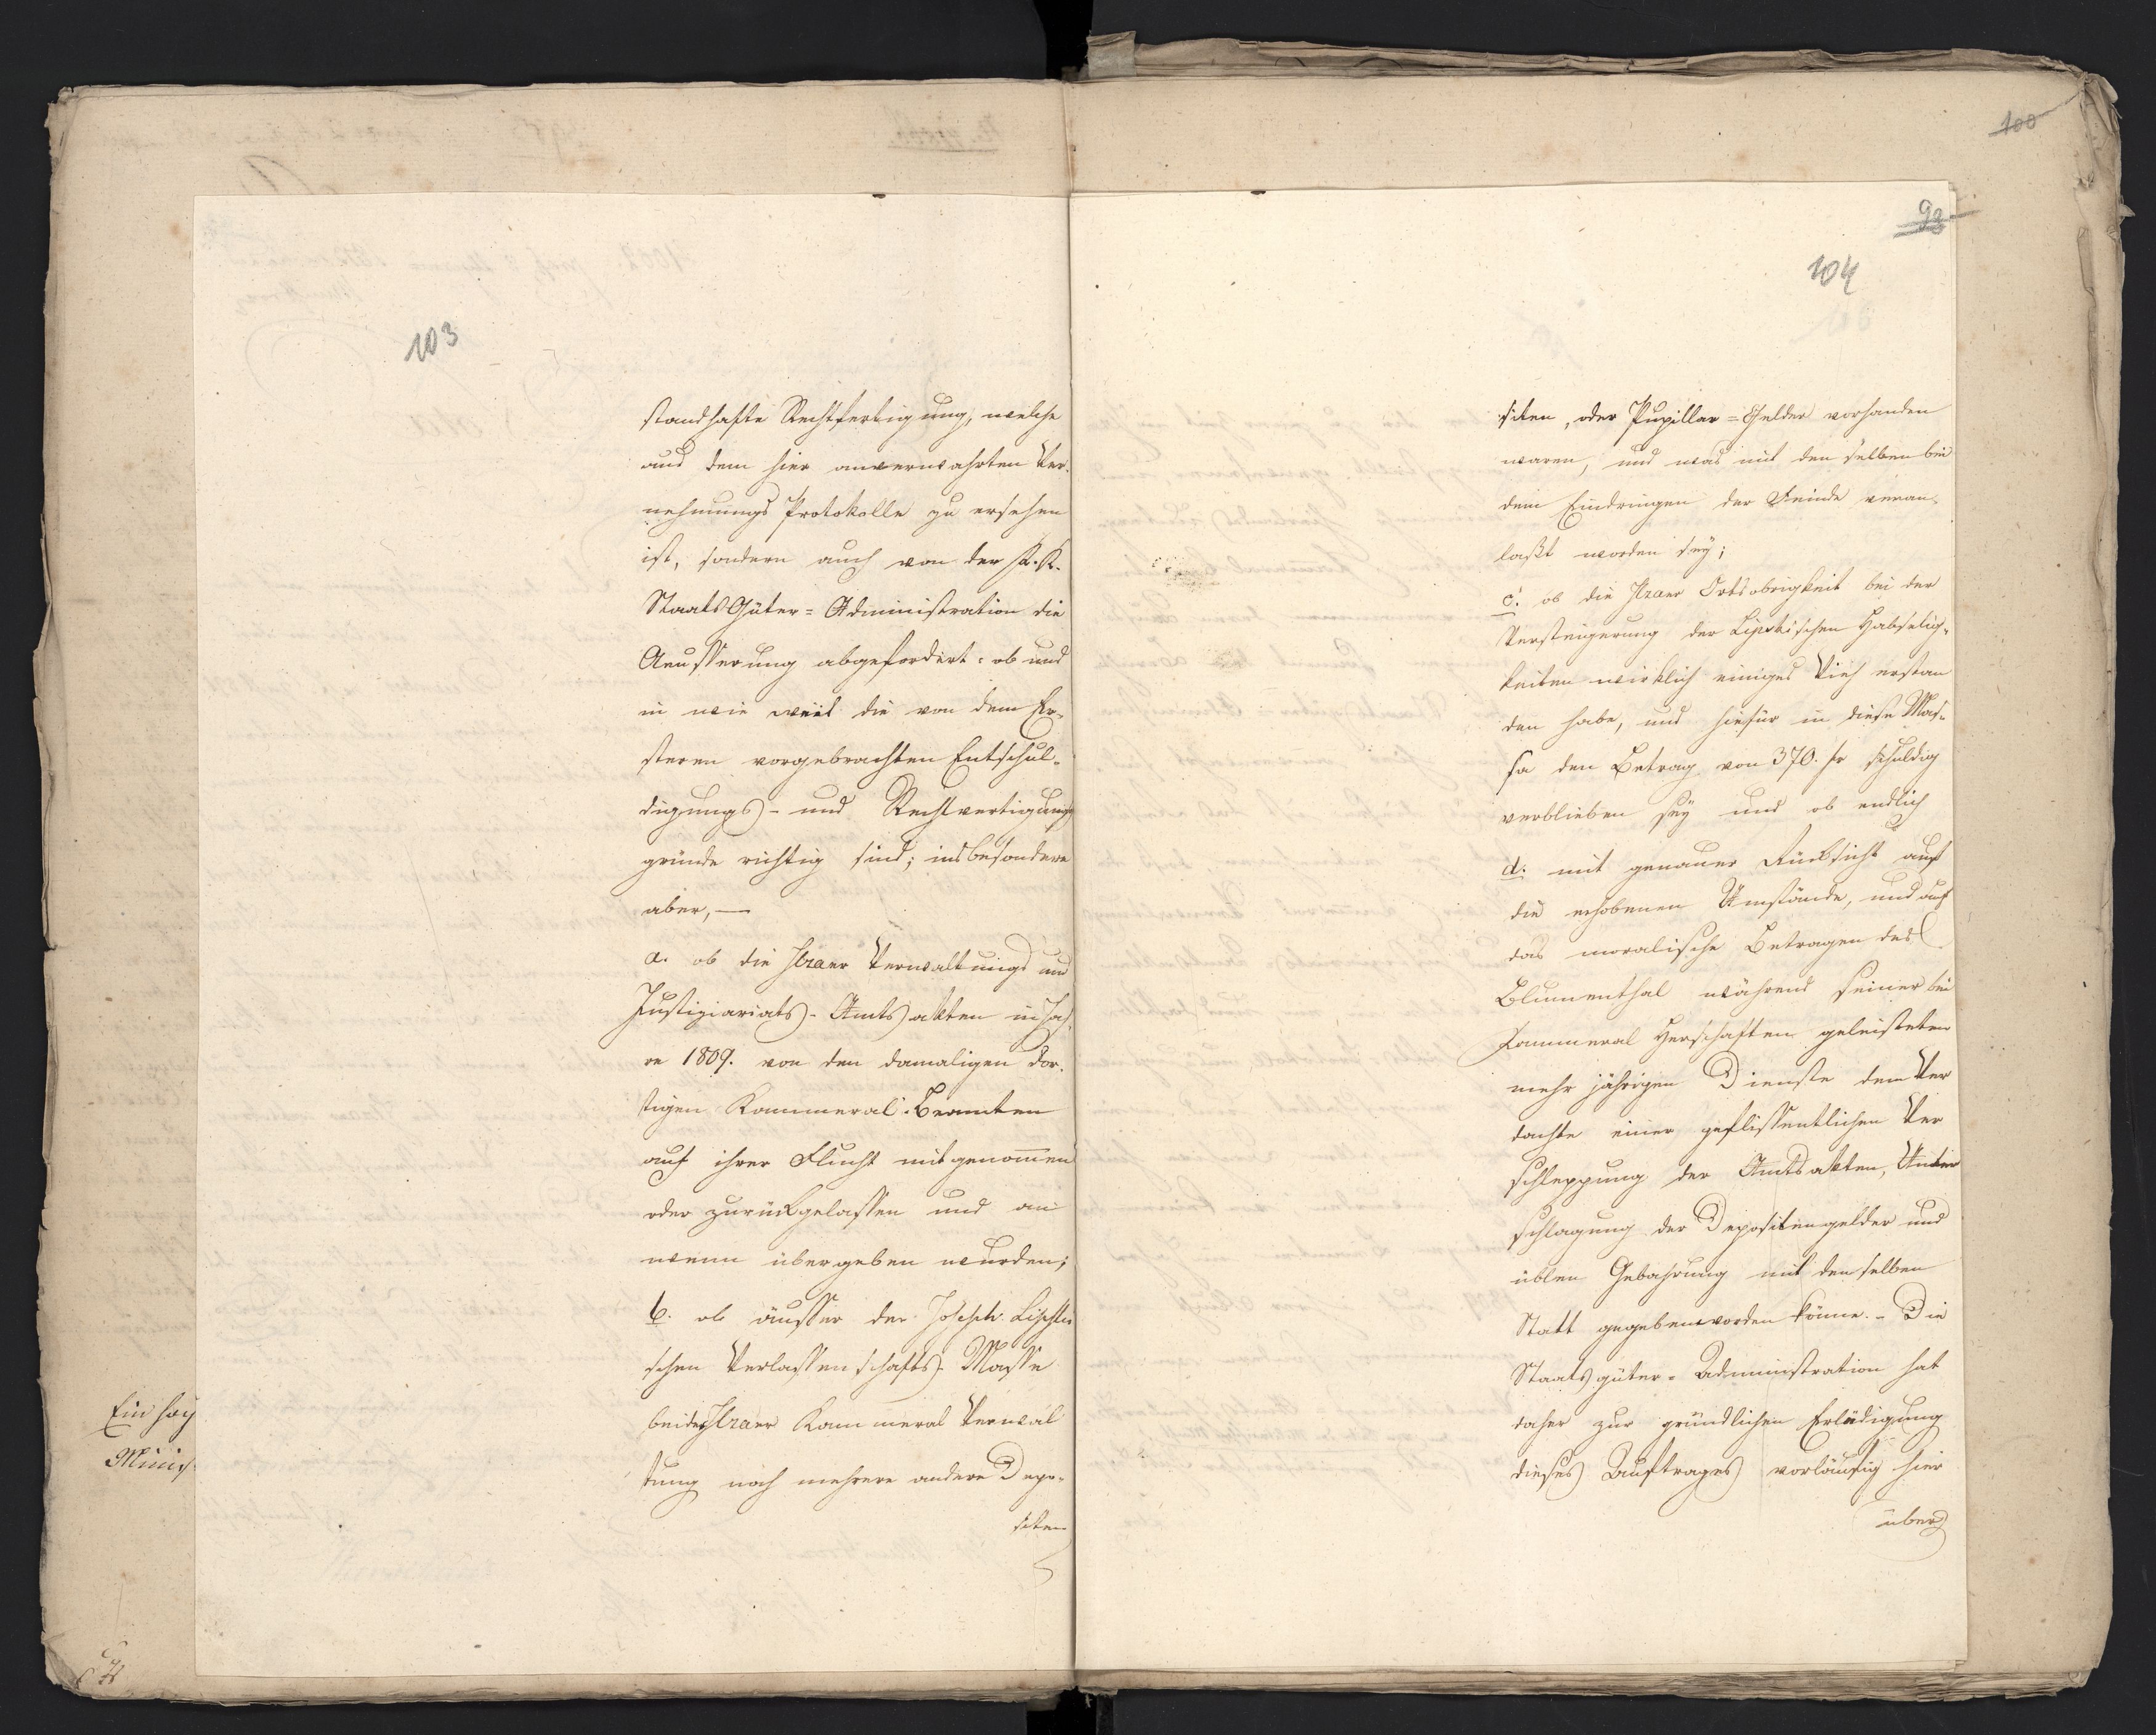 103
standhafte Rechtfertigung, welche
aus dem hier anverwahrten Ver-
nehmungs Protokolle zu ersehen
ist, sondern auch von der K. K.
Staats Güter = Administration die
Aeusserung abgefordert: ob und
in wie weit die von dem Er-
steren vorgebrachten Entschul-
digungs- und Rechtvertigungs
gründe richtig sind; insbesondere
aber, —
a. ob die Ilzaer Verwaltungs und
Justiziariats-Amtsakten in Jah-
re 1809. von den damaligen dor-
tigen Kammeral-Beamten
auf ihrer Flucht mitgenommen
oder zurückgelassen und an
wenn übergeben wurden;
b. ob äusser der Joseph
schen Verlassenschafts-Masse
bei der Ilzaer Kammeral Verwal
tung noch mehrere andere Depo-
siten
Ein hoch
Minis
100
93
104
siten, oder Pupillar = Gelder vorhanden
waren, und was mit denselben bei
dem Eindringen der Feinde veran-
laßt worden sey;
c. ob die Ilzaer Ortsobrigkeit bei der
Versteigerung der Lipskischen Habselig-
keiten wirklich einiges Vieh erstan
den habe, und hiefür in diese Mas-
sa den Betrag von 370. fr schuldig
verblieben sey und ob endlich
d. mit genauer Rücksicht auf
die erhobenen Umstände, und auf
das moralische Betragen des
Blumenthal während seiner bei
Kammeral Herschaften geleisteten
mehr jährigen Dienste dem Ver
dachte einer geflissentlichen Ver
schleppung der Amtsakten, Unter
schlagung der Depositengelder und
üblen Gebahrung mit denselben
Statt gegeben werden könne. - Die
Staatsgüter-Administration hat
daher zur gründlichen Erledigung
dieses Auftrages vorläufig hier
über